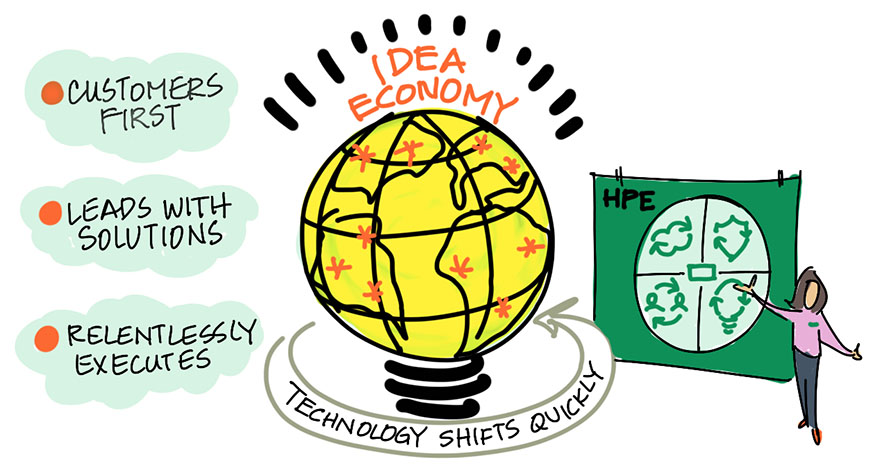 CUSTOMERS
FIRST
LEADS WITH
SOLUTIONS
RELENTLESSLY
EXECUTES
IDEA
ECONOMY
TECHNOLOGY SHIFTS QUICKLY
HPE